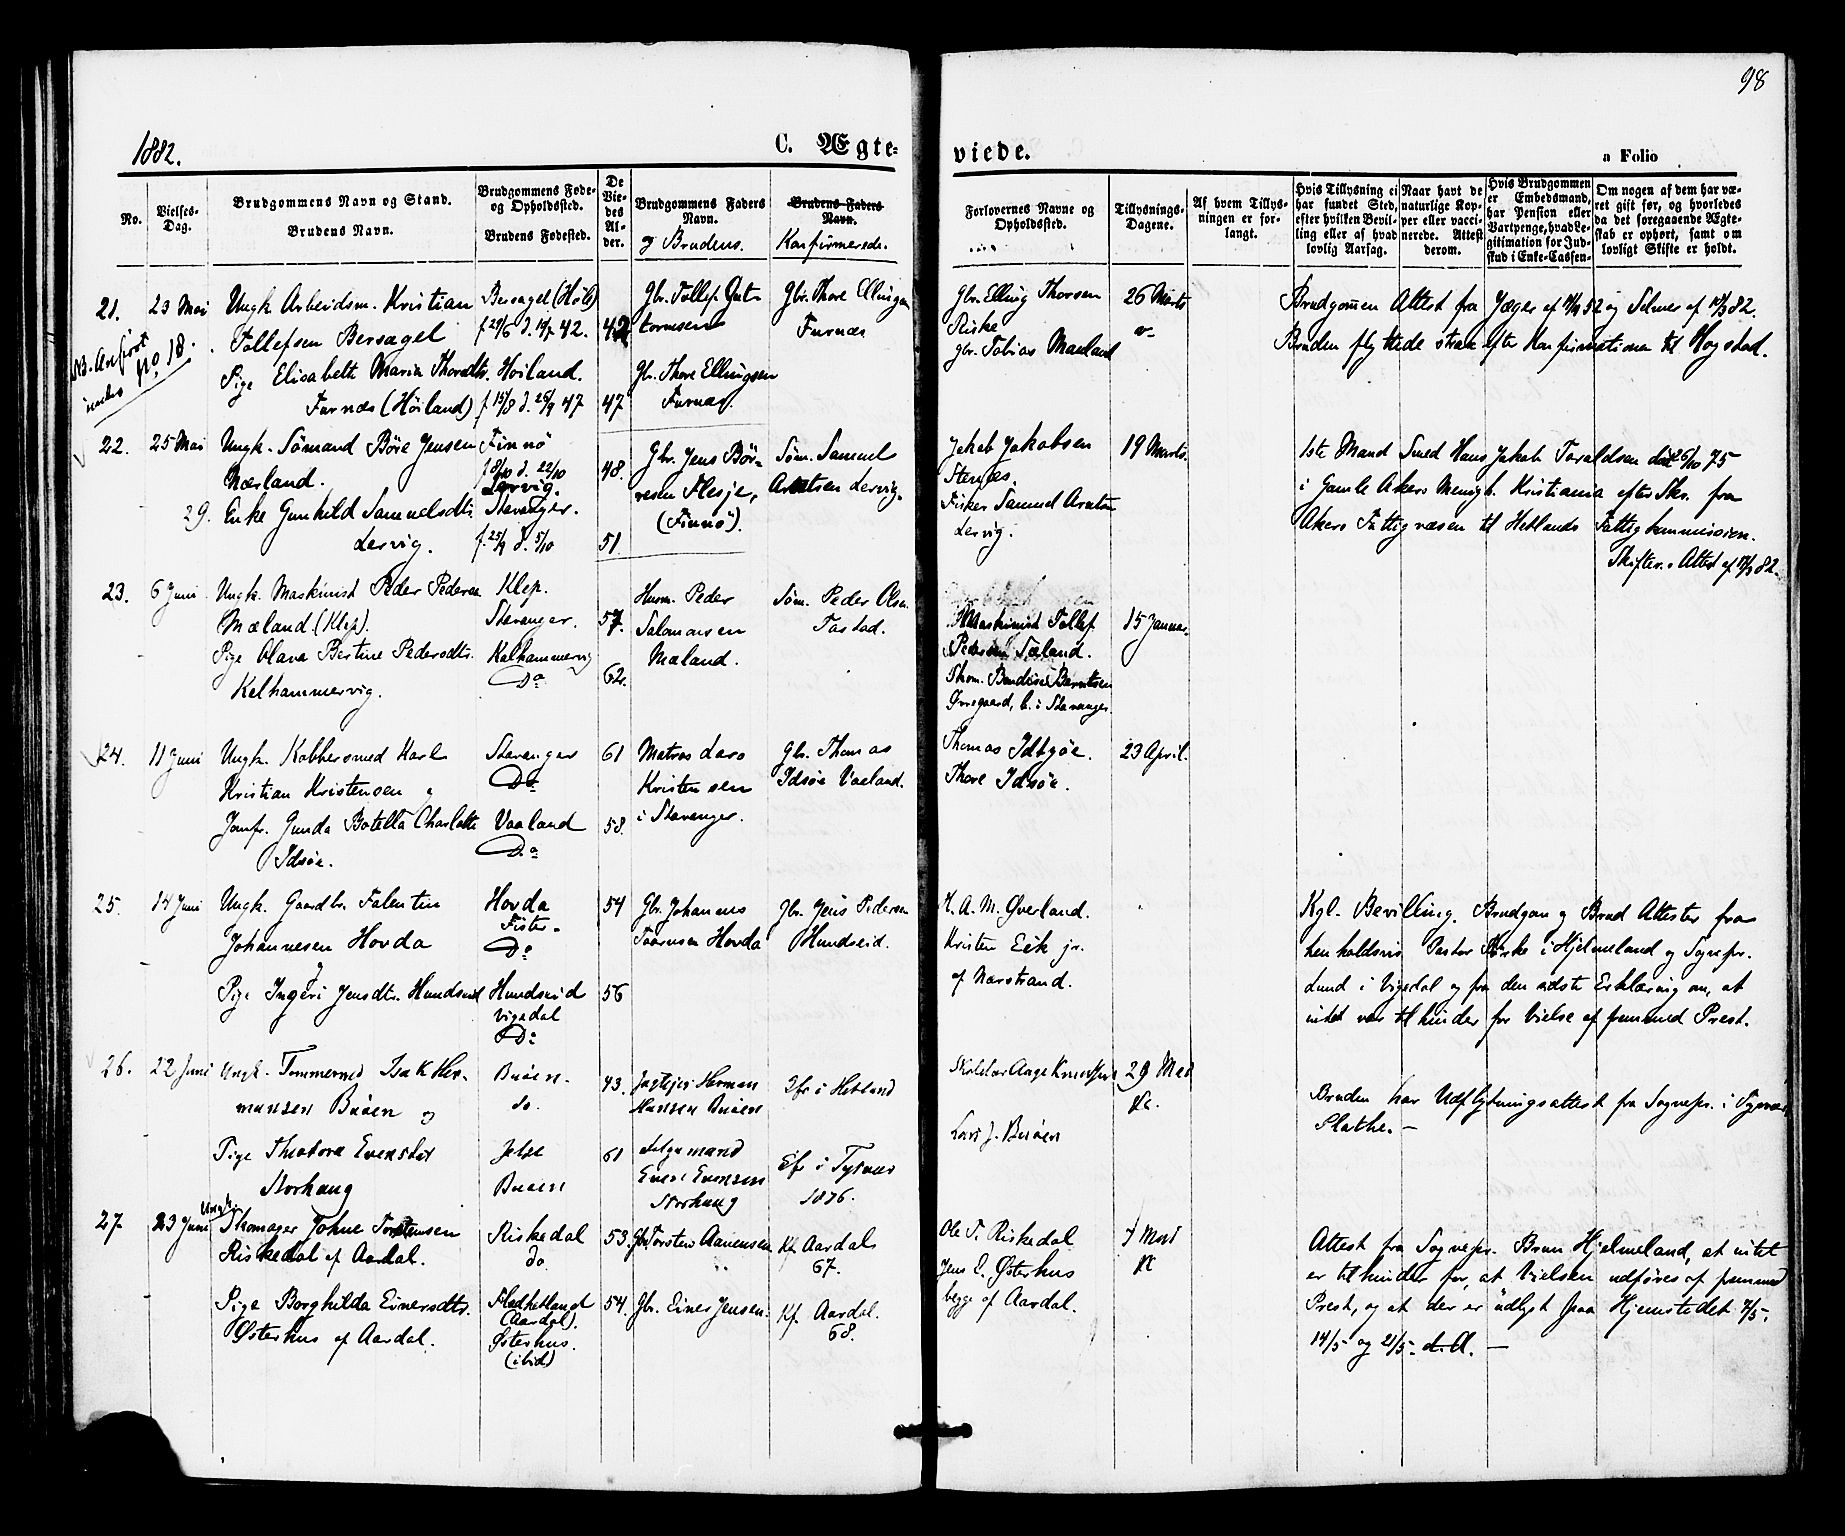 98
1882.
C. Ægte-
viede.
a Folio
No.
Vielses-
Dag.
Brudgommens Navn og Stand.
Brudens Navn.
Brudgommens Føde-
og Opholdssted.
Brudens Fødested.
De
Vie-
des
Al-
der.
Brudgommens Faders
Navn.
og Brudens.
Brudens Faders
Navn.
Konfirmerede.
Forlovernes Navne og
Opholdssted.
Tillysnings-
Dagene.
Af hvem Tillys-
ningen er for-
langt.
Hvis Tillysning ei
har fundet Sted,
efter hvilken Bevil-
ling eller af hvad
lovlig Aarsag.
Naar havt de
naturlige Kop-
per eller vacci-
nerede. Attest
derom.
Hvis Brudgommen
er Embedsmand,
har Pension eller
Vartpenge, hvad Le-
gitimation for Ind-
skud i Enke-Cassen-
Om nogen af dem har væ-
ret gift før, og hvorledes
da det foregaaende Ægte-
skab er ophørt, samt om
lovligt Skifte er holdt.
21. 23 Mai
NB. Anført
No 18.
Ungk. Arbeidsm. Kristian
Tollefsen Bersagel
Pige Elisabeth Maria Thoresdtr.
Furnæs (Høiland)
Bersagel (Høle)
42.
Høiland.
47
42
47
Gbr. Tollef Gut-
tormsen
Gbr. Thore Ellingsen
Furnæs.
Gbr. Thore Ellingsen
Furnæs
Gbr. Elling Thorsen
Riske
gbr. Tobias Mæland
26 Marts
Brudgommen Attest fra Jæger af 52 og Selmer af 82.
Bruden flyttede strax efter Konfirmationen til Hogstad.
22. 25 Mai
Ungk. Sømand Børe Jensen
Nærland.
29. Enke Gunhild Samuelsdtr.
Lervig.
Finnø
f. 8/10 d. 22/10
Lervig.
Stavanger.
f. 25/9 d. 5/10
48.
51
Gbr. Jens Bør-
resen Flesje,
(Finnø).
Søm. Samuel
Arntsen Lervig.
Jakob Jakobsen
Stenæs.
Fisker Samuel Arntsen
Lervig.
19 Marts.
1ste Mand Smed Hans Jakob Taraldsen død 6/10 75
i Gamle Akers Menigh. Kristiania efter Skr. fra
Akers Fattigvæsen til Hetlands Fattigkommission.
Skifter. Attest af 82.
23. 6 Juni
Ungk. Maskinist Peder Pedersen
Mæland (Klep).
Pige Olava Bertine Pedersdtr.
Kelhammervig.
Klep.
Stavanger.
Kalhammervig
Do
57.
62.
Husm. Peder
Salomonsen
Mæland.
Søm. Peder Olsen
Tastad.
Maskinist Tollef
Pedersen Sæland.
Skom. Berntsen
b. i Stavanger.
15 Januar.
24. 11 Juni
Ungk. Kobbersmed Karl
Kristian Kristensen og
Jomfr. Gunda Botella Charlotte
Idsøe.
Stavanger
Do
Vaaland
Do
61
58.
Matros Lars
Kristensen
i Stavanger.
Gbr. Thomas
Idsøe Vaaland.
Thomas Idsøe.
Thore Idsøe.
23 April.
25. 14 Juni
Ungk. Gaardbr. Falentin
Johannesen Hovda
Pige Ingeri Jensdtr. Hundseid
Hovda
Fister.
Do
Hundseid
Vigedal
Do
54
56
Gbr. Johannes
Hovda
Gbr. Jens Pedersen
Hundseid.
K. A. M. Øverland.
Kristen Eik jr.
af Nærstrand.
Kgl. Bevilling. Brudgom og Brud Attester fra
henholdsvis Pastor i Hjelmeland og Sognepr.
Lund i Vigedal og fra den sidste Erklæring om, at
intet var til hinder for Vielse af fremmed Prest.
26. 22 Juni
Ungk. Tømmermd Isak Her-
mansen Buøen og
Pige Theodora Evensdtr
Storhaug
Buøen.
do.
Jelse
Buøen
43.
61
Jagtejer Herman
Hansen Buøen
Selgemand
Even Evensen
Storhaug
i Hetland
i Tysvær
1876.
Aage
Lars J. Buøen
29 Mai
Bruden har Udflytningsattest fra Sognepr. i Tysvær
Slathe.-
27 23 Juni
Ungk. Skomager Johne Torstensen
Riskedal af Aardal.
Pige Borghilda Einersdtr.
Østerhus af Aardal.
Riskedal
do.
Fladhetlangt
(Aardal).
Østerhus.
(ibid)
53.
54.
Gbr. Torsten Aanensen
Gbr. Einer Jensen.
Kf. Aardal
67.
Kf. Aardal.
68.
Ole T. Riskedal
Jens E. Østerhus
begge af Aardal.
7 Mai
Attest fra Sognepr. Brun Hjelmeland, at intet
er til hinder for, at Vielsen udføres af fremmed
Prest, og at der er udlyst paa Hjemstedet 7/5.
14/5 og 21/5. d. A. -